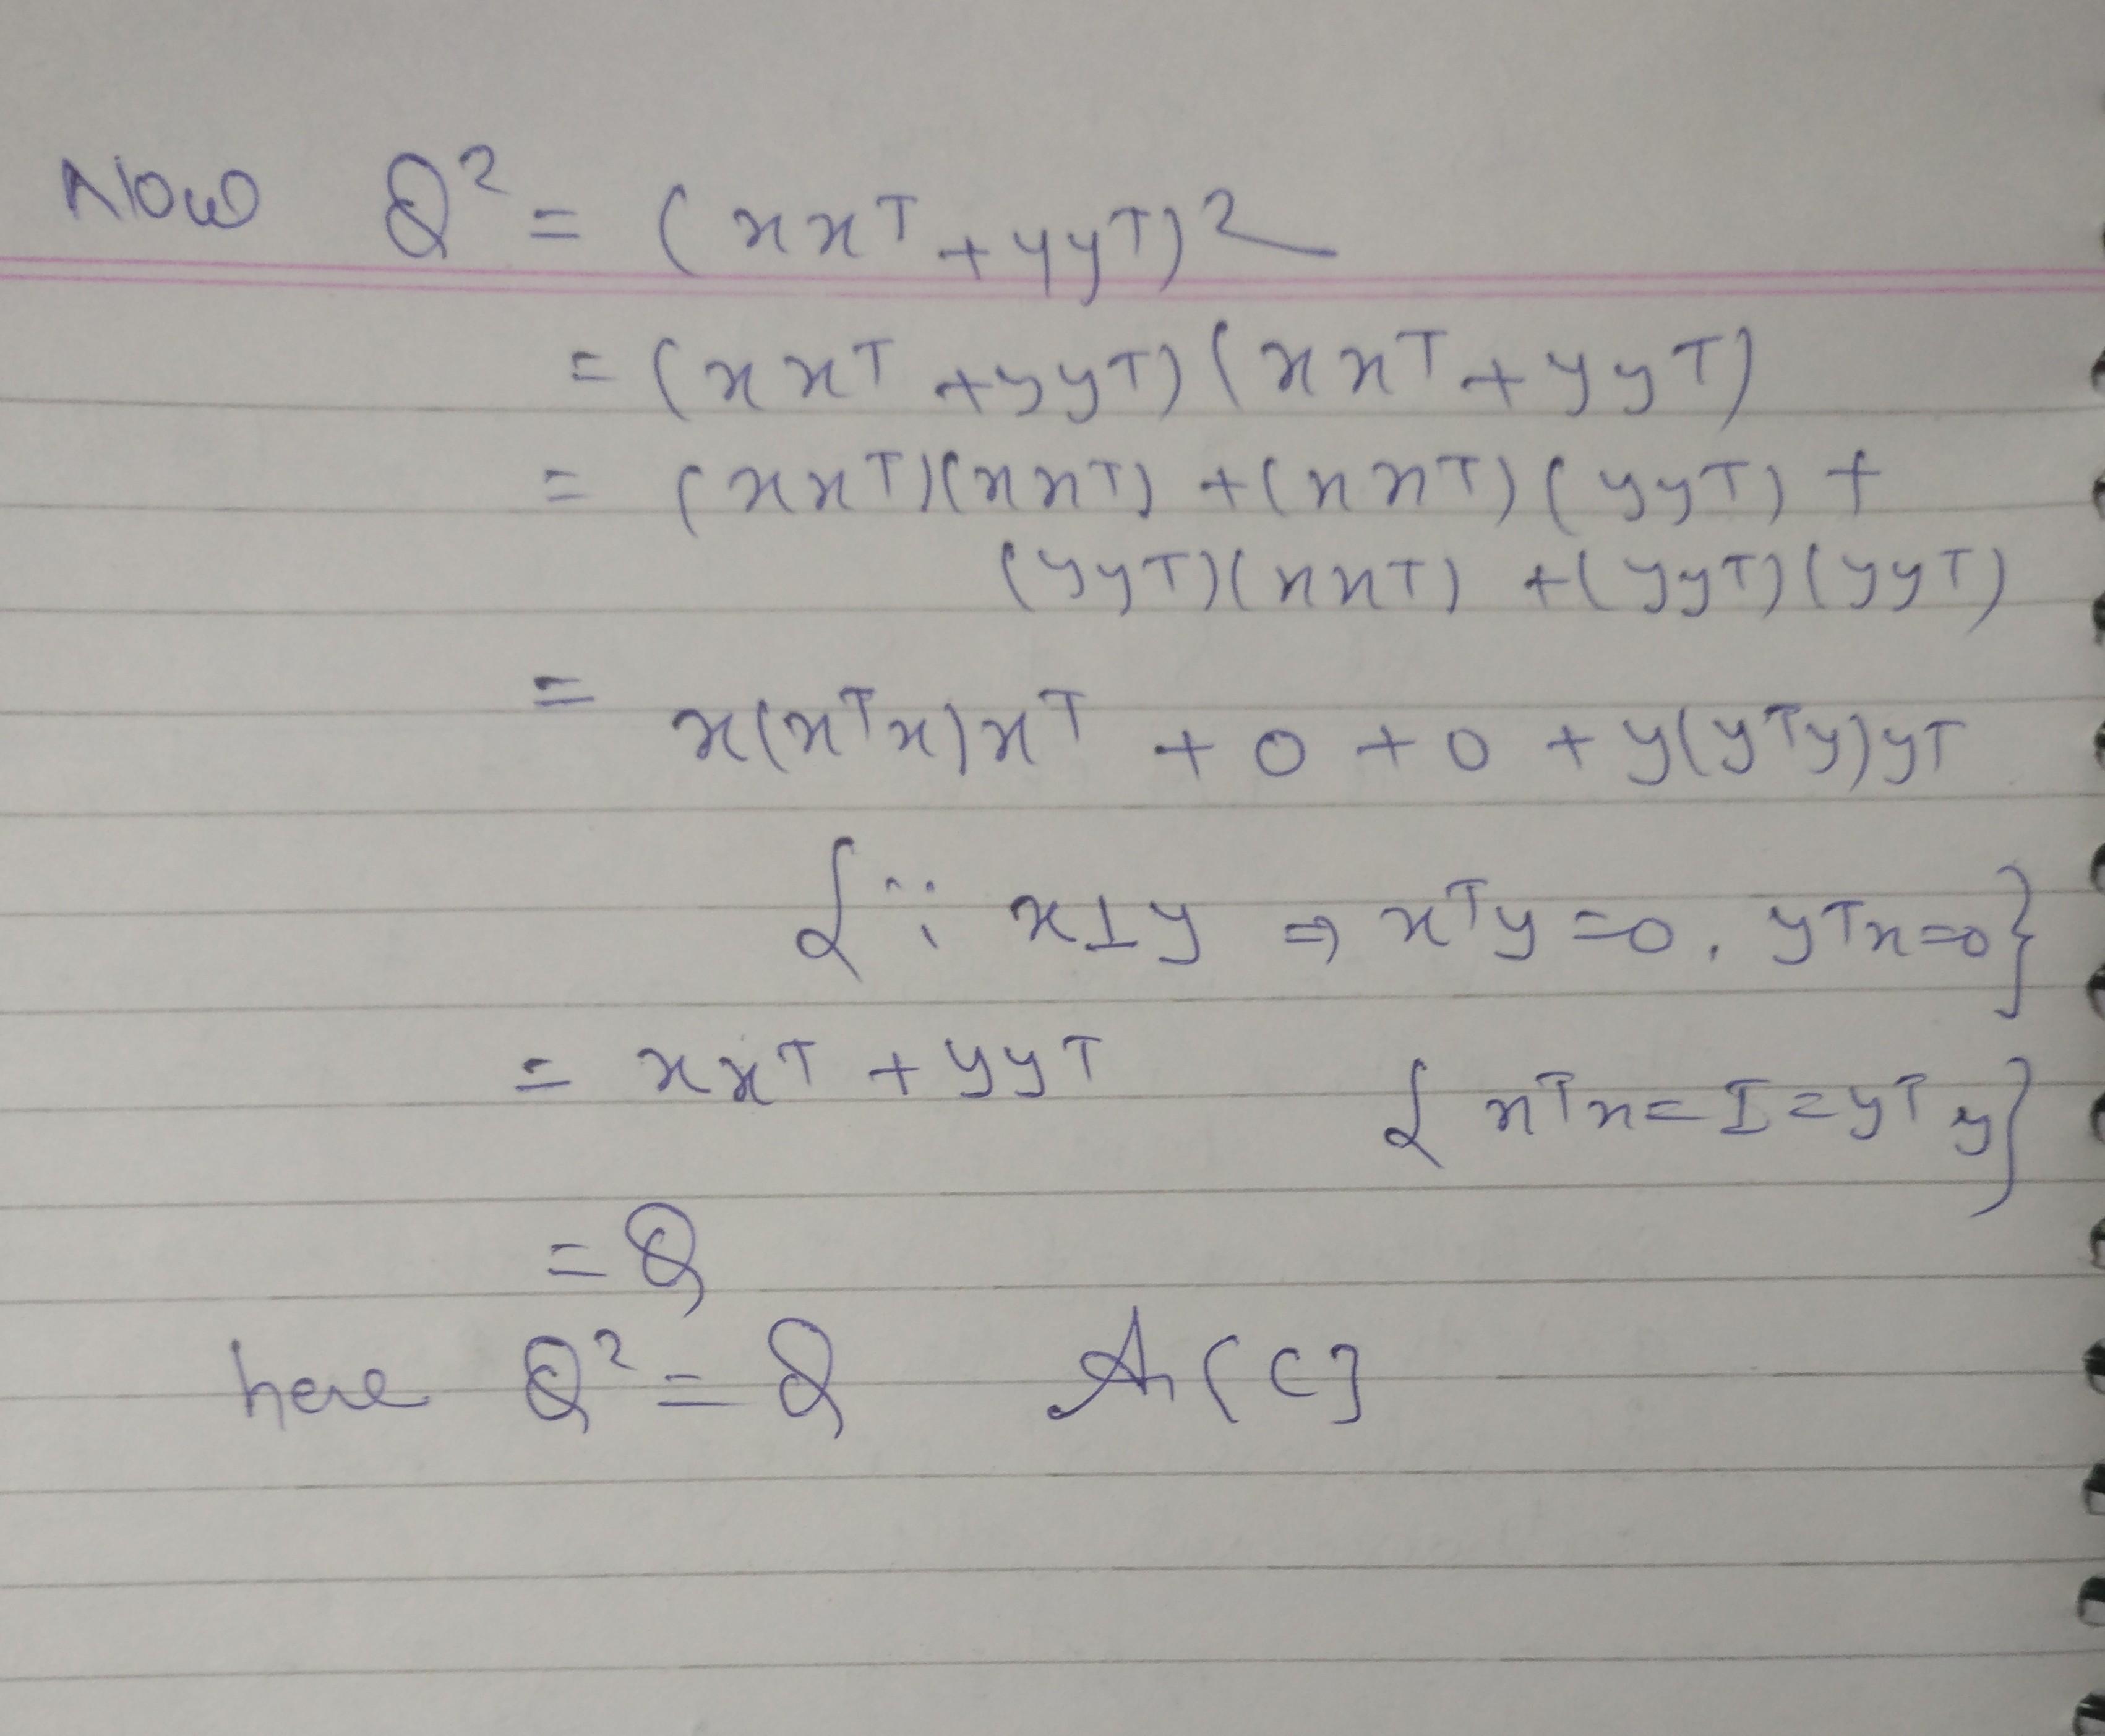 Now Q² = (xxᵀ + yyᵀ)²
= (xxᵀ + yyᵀ)(xxᵀ + yyᵀ)
= (xxᵀ)(xxᵀ) + (xxᵀ)(yyᵀ) +
(yyᵀ)(xxᵀ) + (yyᵀ)(yyᵀ)
= x(xᵀx)xᵀ + 0 + 0 + y(yᵀy)yᵀ
{∵ x⊥y ⇒ xᵀy = 0, yᵀx = 0}
= xxᵀ + yyᵀ {xᵀx = I = yᵀy}
= Q
here Q² = Q An [C]